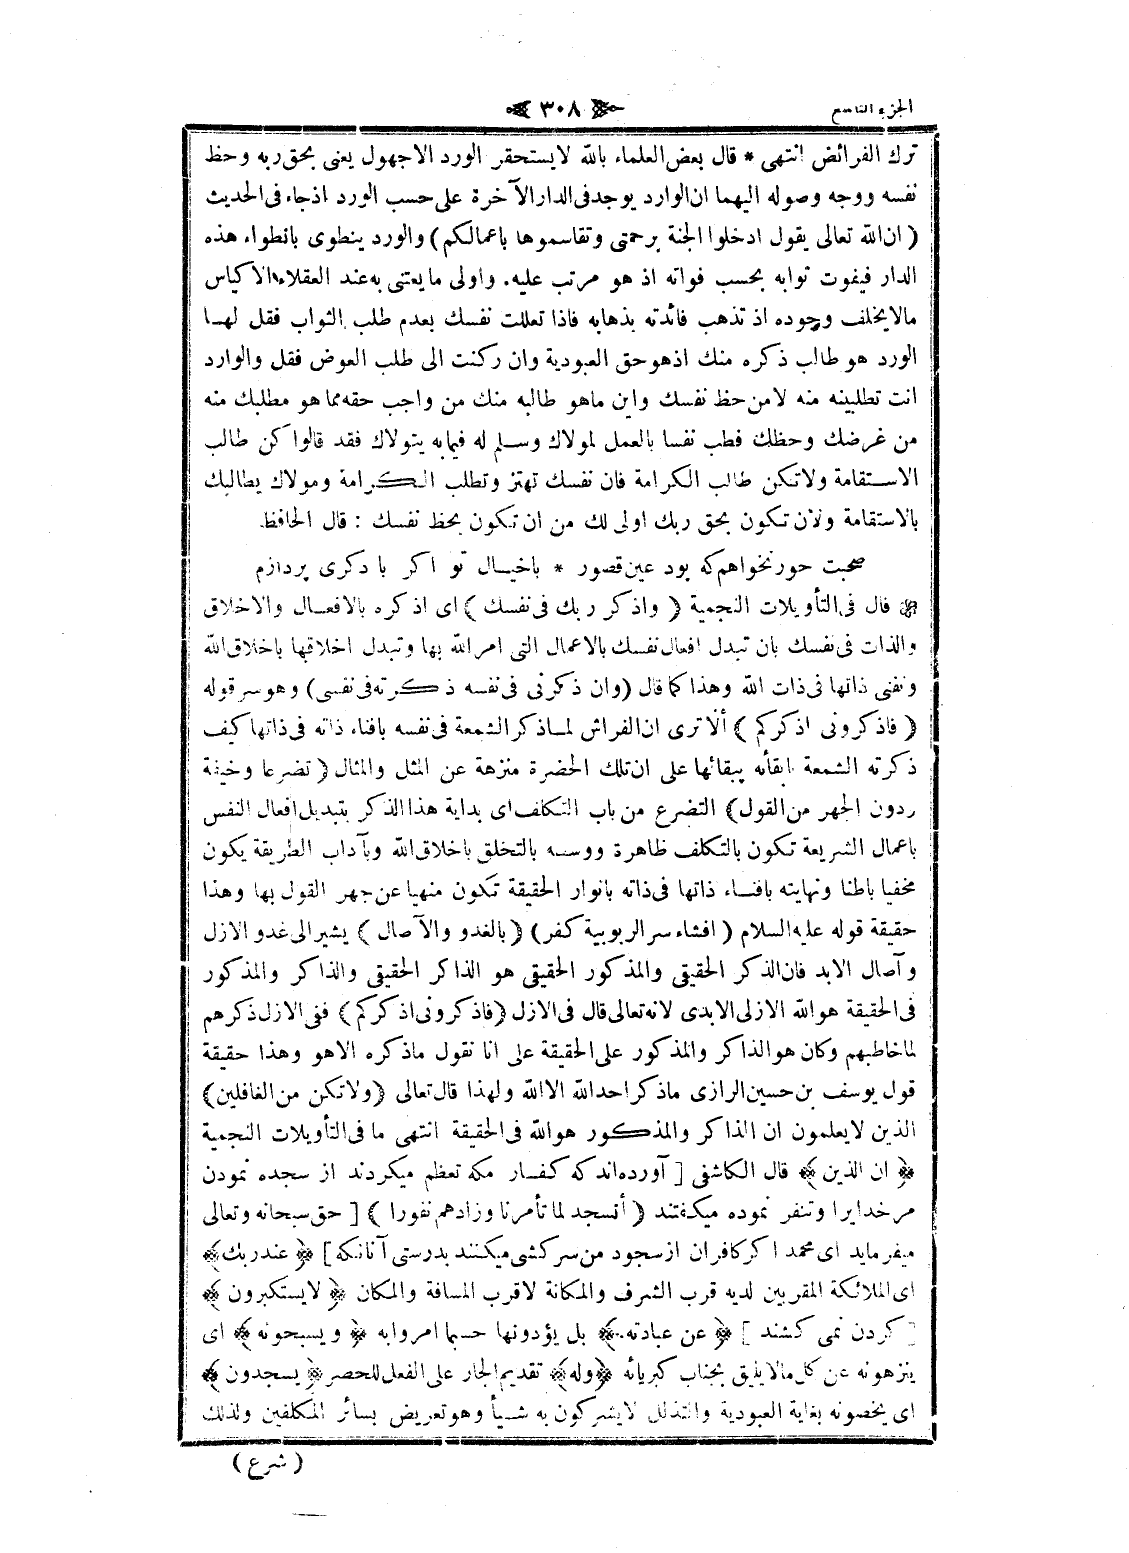 الجزء التاسع
﴿ ٣٠٨ ﴾
ترك الفرائض انتهى * قال بعض العلماء بالله لا يستحقر الورد الا جهول يعنى بحق ربه وحظ
نفسه ووجه وصوله اليهما ان الوارد يوجد فى الدار الآخرة على حسب الورد اذ جاء فى الحديث
( ان الله تعالى يقول ادخلوا الجنة برحمتى وتقاسموها باعمالكم ) والورد ينطوى بانطواء هذه
الدار فيفوت ثوابه بحسب فواته اذ هو مرتب عليه. واولى ما يعتنى به عند العقلاء الاكياس
مالا يخلف وجوده اذ تذهب فائدته بذهابه فاذا تعللت نفسك بعدم طلب الثواب فقل لهـا
الورد هو طالب ذكره منك اذ هو حق العبودية وان ركنت الى طلب العوض فقل والوارد
انت تطلبينه منه لا من حظ نفسك واين ماهو طالبه منك من واجب حقه مما هو مطلبك منه
من غرضك وحظك فطب نفسا بالعمل لمولاك وسلم له فيما به يتولاك فقد قالوا كن طالب
الاستقامة ولا تكن طالب الكرامة فان نفسك تهتز وتطلب الكرامة ومولاك يطالبك
بالاستقامة ولأن تكون بحق ربك اولى لك من ان تكون بحظ نفسك : قال الحافظ
صحبت حور نخواهم كه بود عين قصور * باخيـال تو اكر با دكرى پردازم
قال فى التأويلات النجمية ( واذكر ربك فى نفسك ) اى اذكره بالافعـال والاخلاق
والذات فى نفسك بان تبدل افعال نفسك بالاعمال التى امر الله بها وتبدل اخلاقها باخلاق الله
وتفنى ذاتها فى ذات الله وهذا كما قال (وان ذكرنى فى نفسه ذكرته فى نفسى) وهو سر قوله
( فاذكرونى اذكركم ) ألا ترى ان الفراش لمـا ذكر الشمعة فى نفسه بافناء ذاته فى ذاتها كيف
ذكرته الشمعة بابقائه ببقائها على ان تلك الحضرة منزهة عن المثل والمثال ( تضرعا وخيفة
ودون الجهر من القول ) التضرع من باب التكلف اى بداية هذا الذكر بتبديل افعال النفس
باعمال الشريعة تكون بالتكلف ظاهرة ووسطه بالتخلق باخلاق الله وبآداب الطريقة يكون
مخفيا باطنا ونهايته بافنـاء ذاتها فى ذاته بانوار الحقيقة تكون منهيا عن جهر القول بها وهذا
حقيقة قوله عليه السلام ( افشاء سر الربوبية كفر ) ( بالغدو والآصال ) يشير الى غدو الازل
وآصال الابد فان الذكر الحقيقى والمذكور الحقيقى هو الذاكر الحقيقى والذاكر والمذكور
فى الحقيقة هو الله الازلى الابدى لانه تعالى قال فى الازل (فاذكرونى اذكركم) ففى الازل ذكرهم
لما خاطبهم وكان هو الذاكر والمذكور على الحقيقة على انا نقول ماذكره الا هو وهذا حقيقة
قول يوسف بن حسين الرازى ماذكر احد الله الا الله ولهذا قال تعالى (ولا تكن من الغافلين)
الذين لا يعلمون ان الذاكر والمذكور هو الله فى الحقيقة انتهى ما فى التأويلات النجمية
﴿ ان الذين ﴾ قال الكاشفى [ آورده اند كه كفـار مكه تعظم ميكردند از سجده نمودن
مر خدايرا وتنفر نموده ميكفتند ( أنسجد لما تأمرنا وزادهم نفورا ) [ حق سبحانه وتعالى
ميفرمايد اى محمد اكر كافران از سجود من سركشى ميكنند بدرستى آنانكه ] ﴿ عند ربك ﴾
اى الملائكة المقربين لديه قرب الشرف والمكانة لا قرب المسافة والمكان ﴿ لا يستكبرون ﴾
[ كردن نمى كشند ] ﴿ عن عبادته ﴾ بل يؤدونها حسبما امروا به ﴿ ويسبحونه ﴾ اى
ينزهونه عن كل مالا يليق بجناب كبريائه ﴿ وله ﴾ تقديم الجار على الفعل للحصر ﴿ يسجدون ﴾
اى يخصونه بغاية العبودية والتذلل لا يشركون به شيأ وهو تعريض بسائر المكلفين ولذلك
( شرع )